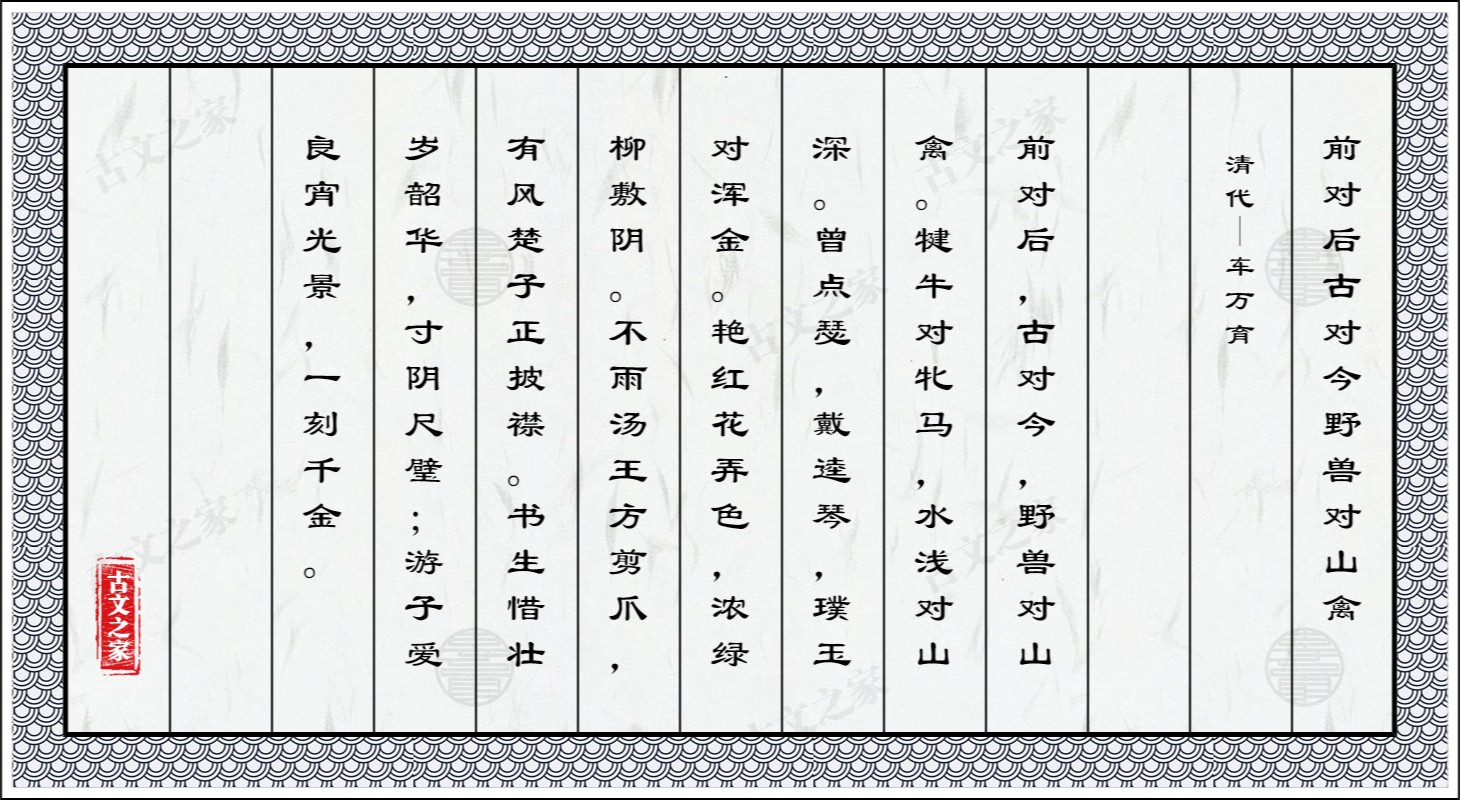 前对后古对今野兽对山禽
清代—车万育
前对后，古对今，野兽对山
禽。犍牛对牝马，水浅对山
深。曾点瑟，戴逵琴，璞玉
对浑金。艳红花弄色，浓绿
柳敷阴。不雨汤王方剪爪，
有风楚子正披襟。书生惜壮
岁韶华，寸阴尺璧；游子爱
良宵光景，一刻千金。
古文之家
古文之家
古文之家
古文之家
古文之家
古文之家
古文之家